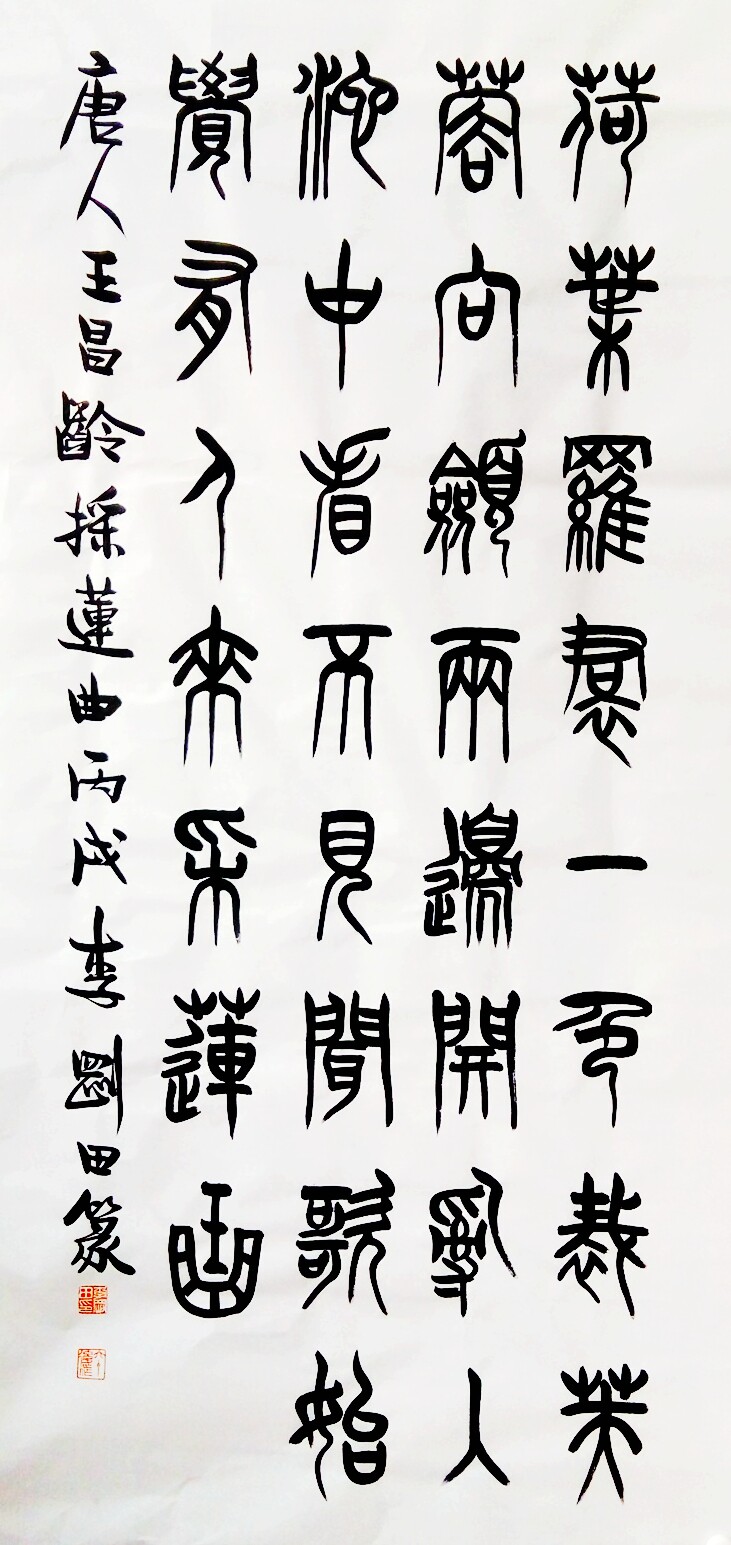 荷葉羅裙一色裁芙
蓉向顩兩邊開亂入
池中看不見聞歌始
覺有人來采蓮曲
唐人王昌齡採蓮曲丙戌李剛田篆